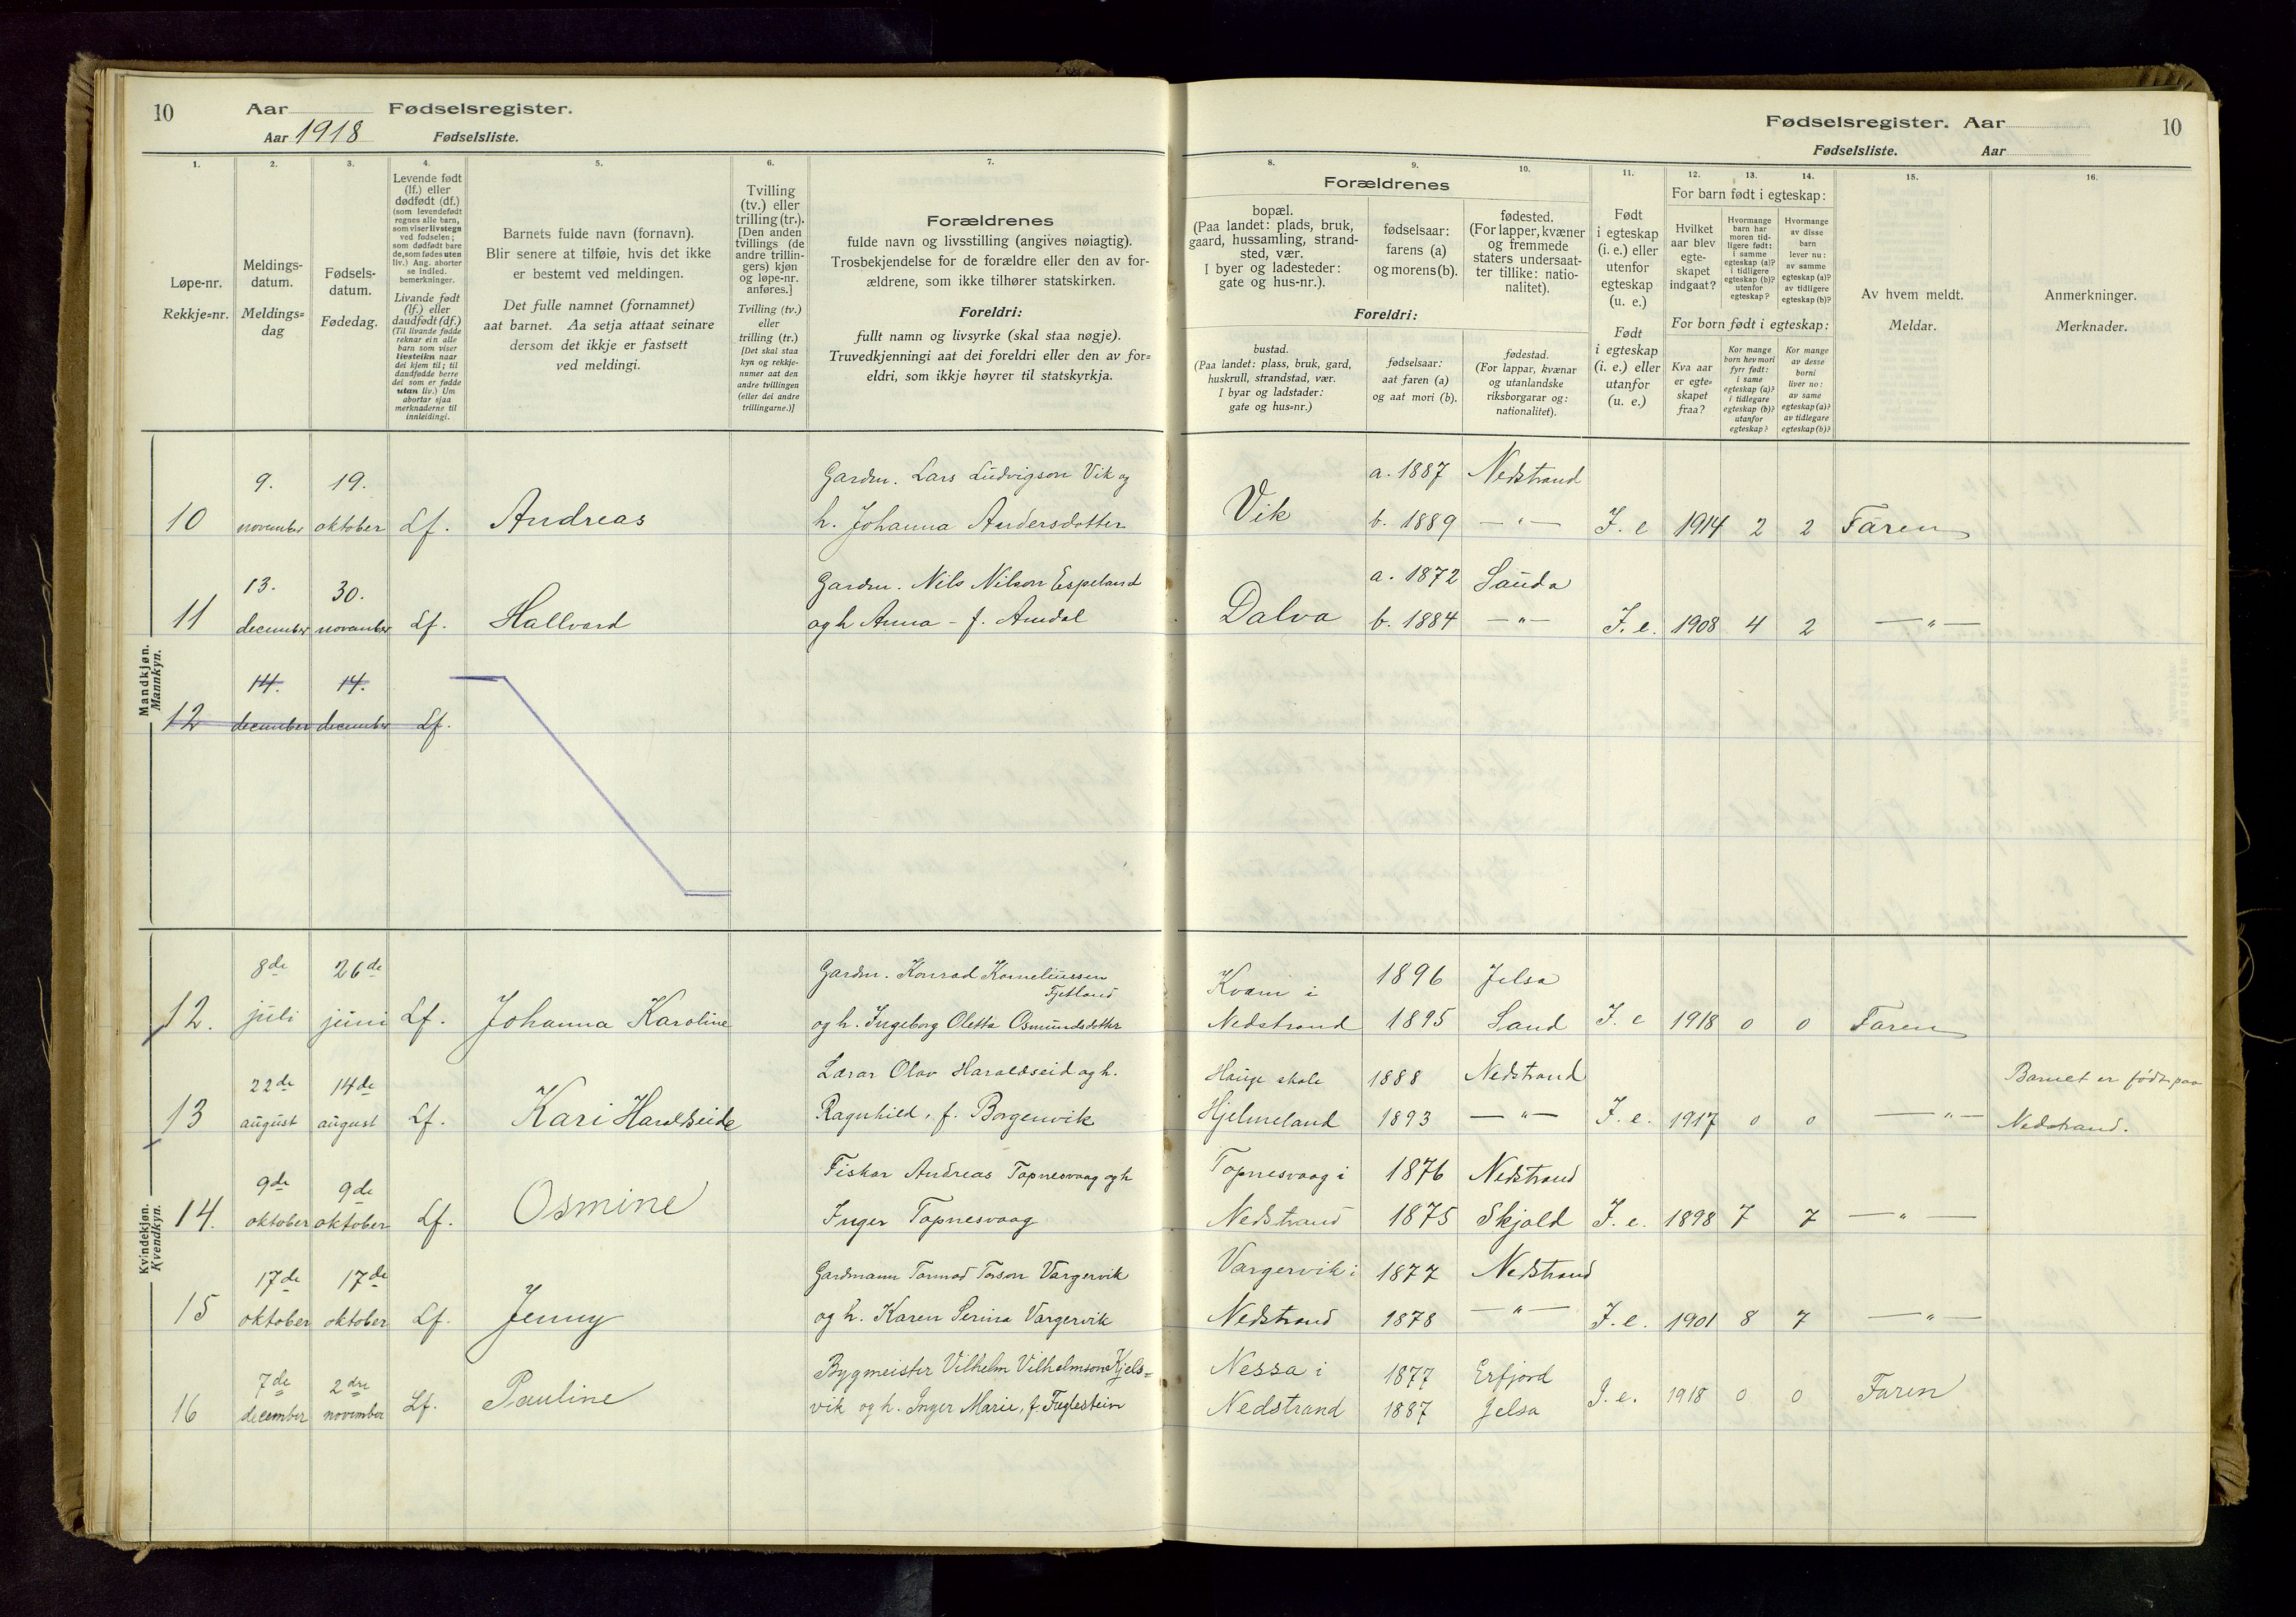 10 Aar Fødselsregister.
Aar 1918 Fødselsliste.
1. 2. 3. 4. 5. 6. 7.
Løpe-nr.
Rekkje=nr.
Meldings-
datum.
Meldings=
dag
Fødsels-
datum.
Fødedag.
Levende født
(lf.) eller
dødfødt (df.)
(som levendefødt
regnes alle barn,
som viser livstegn
ved fødselen;
som dødfødt bare
de, som fødes uten
liv.) Ang. aborter
se indled.
bemerkninger.
Livande født
(lf.) eller
daudfødt (df.)
(Til livande fødde
reknar ein alle
barn som viser
livsteikn naar
dei kjem til; til
daudfødde berre
dei som er fødde
utan liv.) Um
abortar sjaa
merknaderne til
innleidingi.
Barnets fulde navn (fornavn).
Blir senere at tilføie, hvis det ikke
er bestemt ved meldingen.
Det fulle namnet (fornamnet)
aat barnet. Aa setja attaat seinare
dersom det ikkje er fastsett
ved meldingi.
Tvilling
(tv.) eller
trilling (tr.).
[Den anden
tvillings (de
andre trillin-
gers) kjøn
og løpe-nr.
anføres.]
Tvilling (tv.)
eller
trilling (tr.)
[Det skal staa
kyn og rekkje-
numer aat den
andre tvillingen
(eller dei andre
trillingarne.)]
Forældrenes
fulde navn og livsstilling (angives nøiagtig).
Trosbekjendelse for de forældre eller den av for-
ældrene, som ikke tilhører statskirken.
Foreldri:
fullt namn og livsyrke (skal staa nøgje).
Truvedkjenningi aat dei foreldri eller den av for=
eldri, som ikkje høyrer til statskyrkja.
Fødselsregister. Aar 10
Fødselsliste. Aar
8. 9. 10. 11. 12. 13. 14. 15. 16.
Forældrenes
bopæl.
(Paa landet: plads, bruk,
gaard, hussamling, strand-
sted, vær.
I byer og ladesteder:
gate og hus-nr.).
fødselsaar:
farens (a)
og morens (b).
fødested.
(For lapper, kvæner
og fremmede
staters undersaat-
ter tillike: natio-
nalitet).
Foreldri:
bustad.
(Paa landet: plass, bruk, gard,
huskrull, strandstad, vær.
I byar og ladstader:
gate og hus=nr.)
fødselsaar:
aat faren (a)
og aat mori (b).
fødestad.
(For lappar, kvænar
og utanlandske
riksborgarar og:
nationalitet).
Født
i egteskap
(i. e.) eller
utenfor
egteskap
(u. e.)
Født
i egteskap
(i. e.) eller
utanfor
(u. e.)
For barn født i egteskap:
Hvilket
aar blev
egte-
skapet
indgaat?
Hvormange
barn har
moren tid-
ligere født:
i samme
egteskap (a)?
i tidligere
egteskap (b)?
utenfor
egteskap?
Hvormange
av disse
barn
lever nu:
av samme
egteskap (a)?
av tidligere
egteskap (b)?
For born født i egteskap:
Kva aar
er egte=
skapet
fraa?
Kor mange
born hev mori
fyrr født:
i same
egteskap (a)?
i tidlegare
egteskap (b)?
utanfor
egteskap?
Kor mange
av desse
borni
liver no:
av same
egteskap (a)?
av tidlegare
egteskap (b)?
Av hvem meldt.
Meldar.
Anmerkninger.
Merknader.
Mandkjøn.
Mannkyn.
9. 19. Gardm. Lars Ludvigson Vik og a. 1887 Nedstrand
10 november oktober Lf. Andreas h. Johanna Andersdotter Vik b. 1889 —"— I. e 1914 2 2 Faren
13. 30. Gardm. Nils Nilson Espeland a. 1872 Sauda
11 december november Lf. Hallvard og h Anna - f. Amdal Dalva b. 1884 —"— I. e. 1908 4 2 —"—
14. 14.
12 december december Lf.
Kvindekjøn.
Kvendkyn.
8de 26de Gardm. Konrad Korneliussen Kvam i 1896 Jelsa
Fjetland
12. juli juni Lf. Johanna Karoline og h. Ingeborg Oletta Osmundsdotter Nedstrand 1895 Sand I. e 1918 0 0 Faren
22de 14de Lærar Olav Haraldseid og h. Hauge skole 1888 Nedstrand Barnet er født paa
13 august august Lf. Kari Haraldseide Ragnhild, f. Borgenvik Hjelmeland 1893 —"— I. e. 1917 0 0 —"— Nedstrand.
9de 9de Fiskar Andreas Tapnesvaag og h Tapnesvaag i 1876 Nedstrand
14. oktober oktober Lf. Osmine Inger Tapnesvaag Nedstrand 1875 Skjold I. e. 1898 7 7 —"—
17de 17de Gardmann Tormod Torson Vargervik Vargervik i 1877 Nedstrand
15 oktober oktober Lf. Jenny og h. Karen Serina Vargervik Nedstrand 1878 —"— I. e. 1901 8 7 —"—
7de 2dre Bygmeister Vilhelm Vilhelmson Kjels= Nessa i 1877 Erfjord
16 december november Lf. Pauline vik og h. Inger Marie, f. Fuglestein Nedstrand 1887 Jelsa I. e. 1918 0 0 Faren